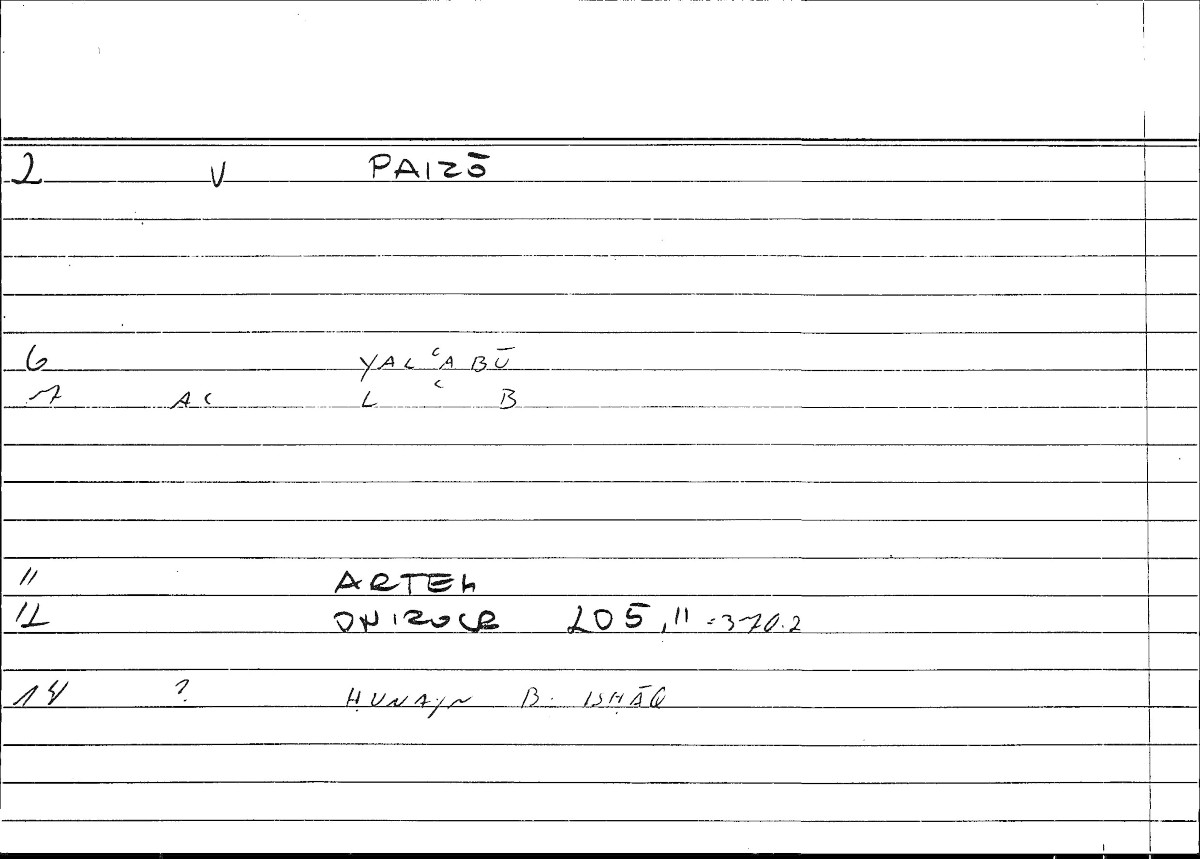 2 V PAIZŌ
6 YALʿABŪ
7 AC L ʿ B
11 ARTEM
12 ONIROCR 205,11 = 370.2
14 ? ḤUNAYN B. ISḤĀQ